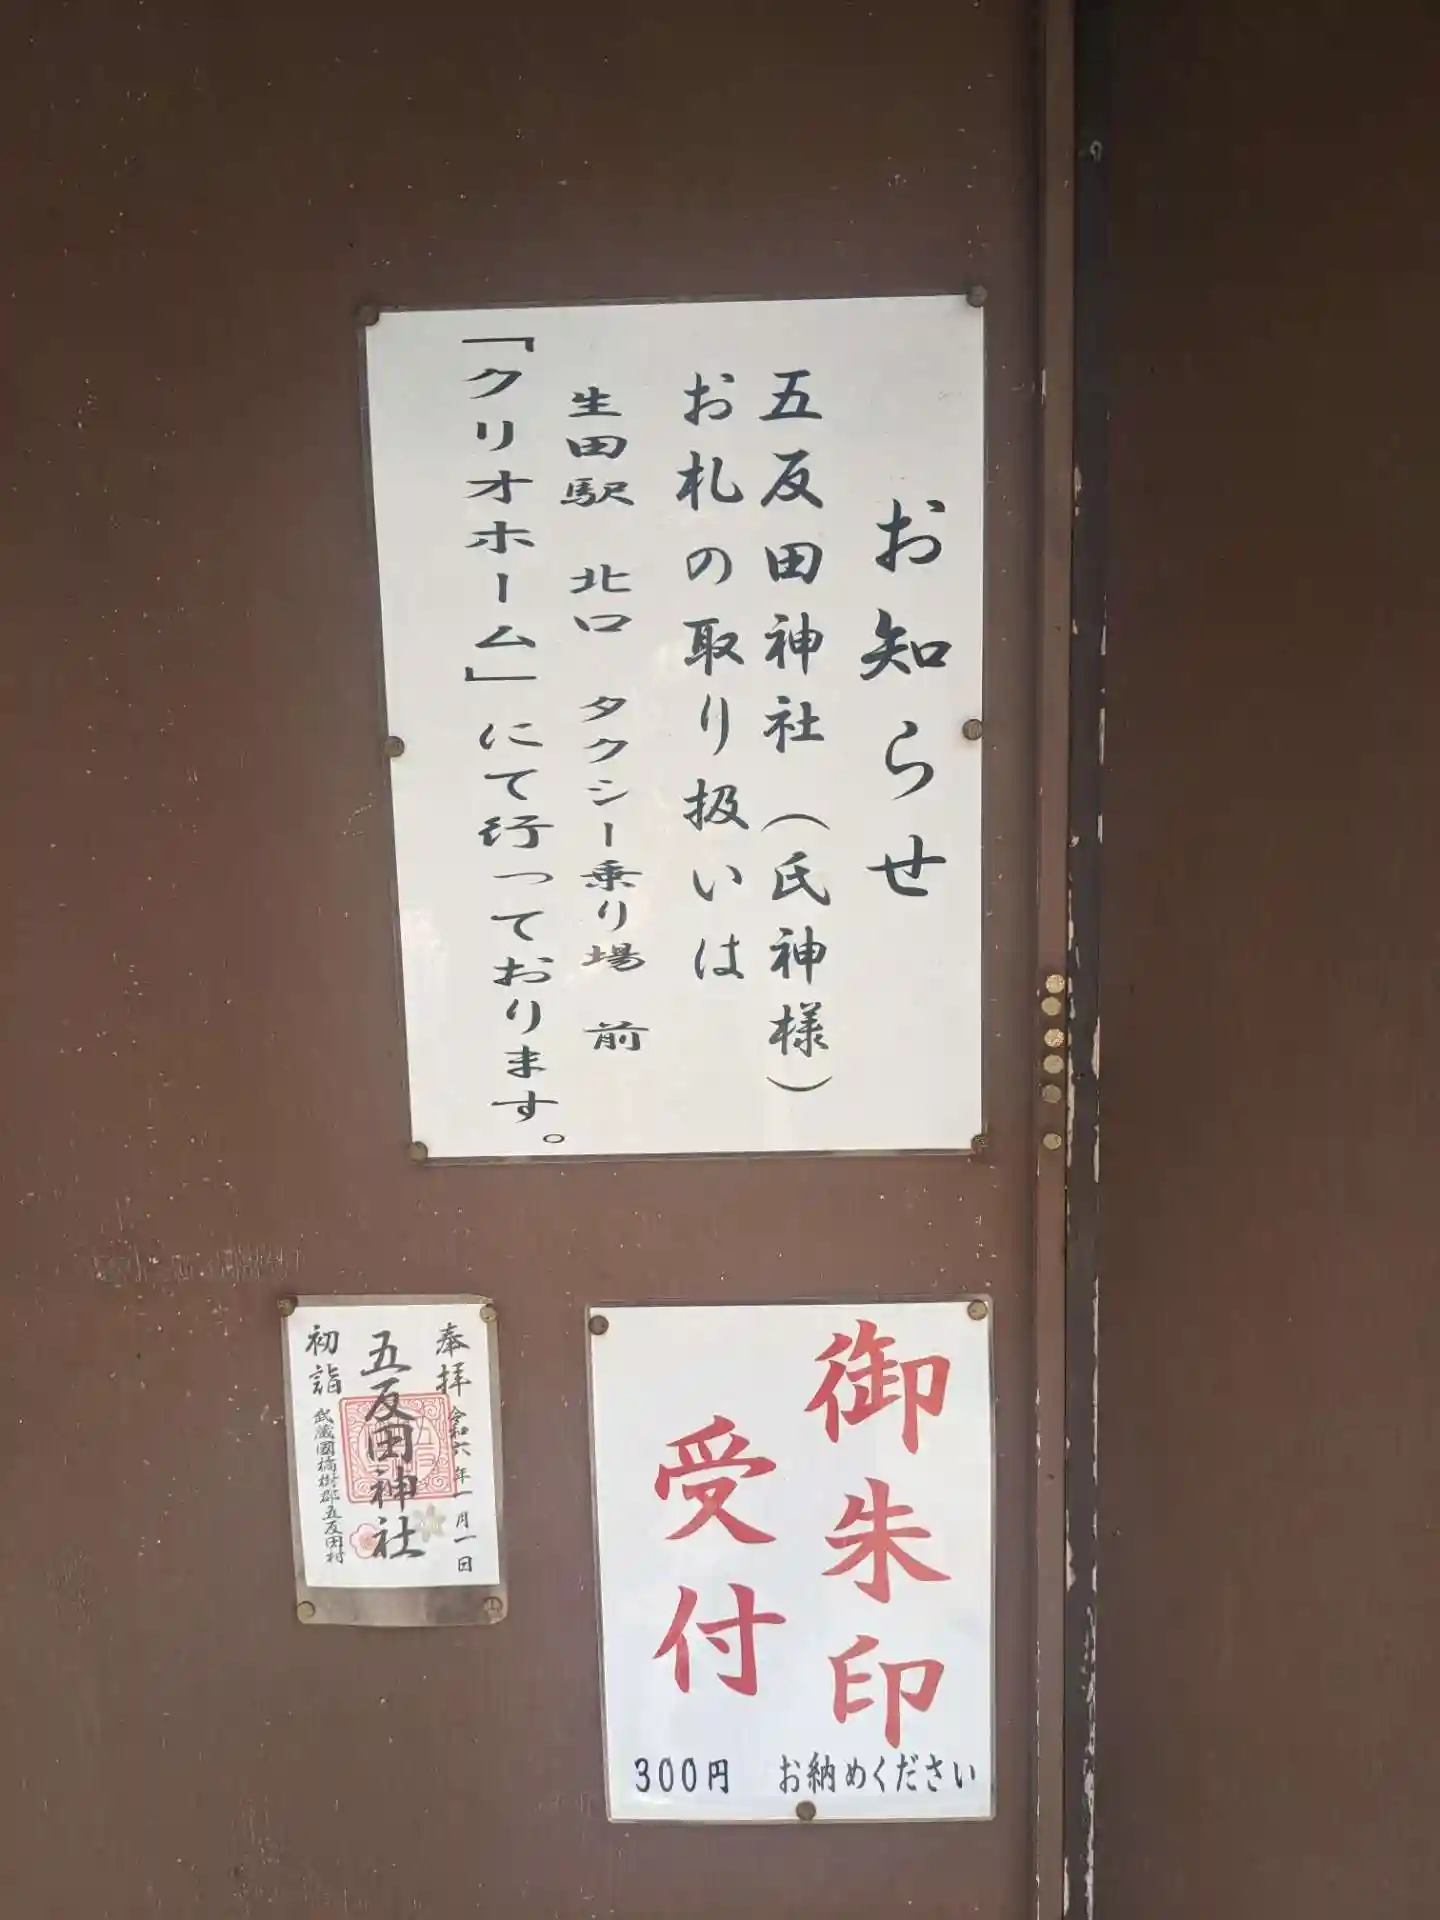 お知らせ
五反田神社（氏神様）
お札の取り扱いは
生田駅 北口 タクシー乗り場 前
「クリオホーム」にて行っております。
奉拝 令和六年一月一日
五反田神社
初詣 武蔵國橘樹郡五反田村
御朱印
受付
300円 お納めください